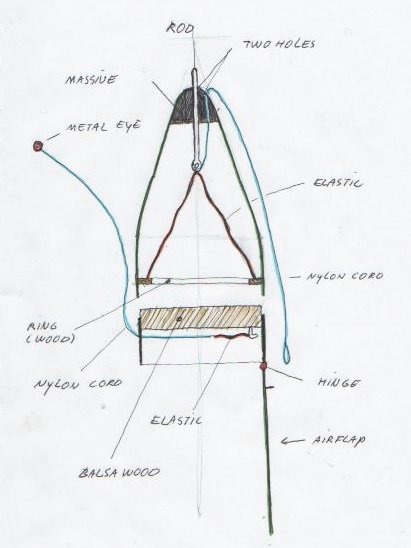 ROD
TWO HOLES
MASSIVE
METAL EYE
ELASTIC
NYLON CORD
RING
(WOOD)
NYLON CORD
HINGE
ELASTIC
AIRFLAP
BALSA WOOD